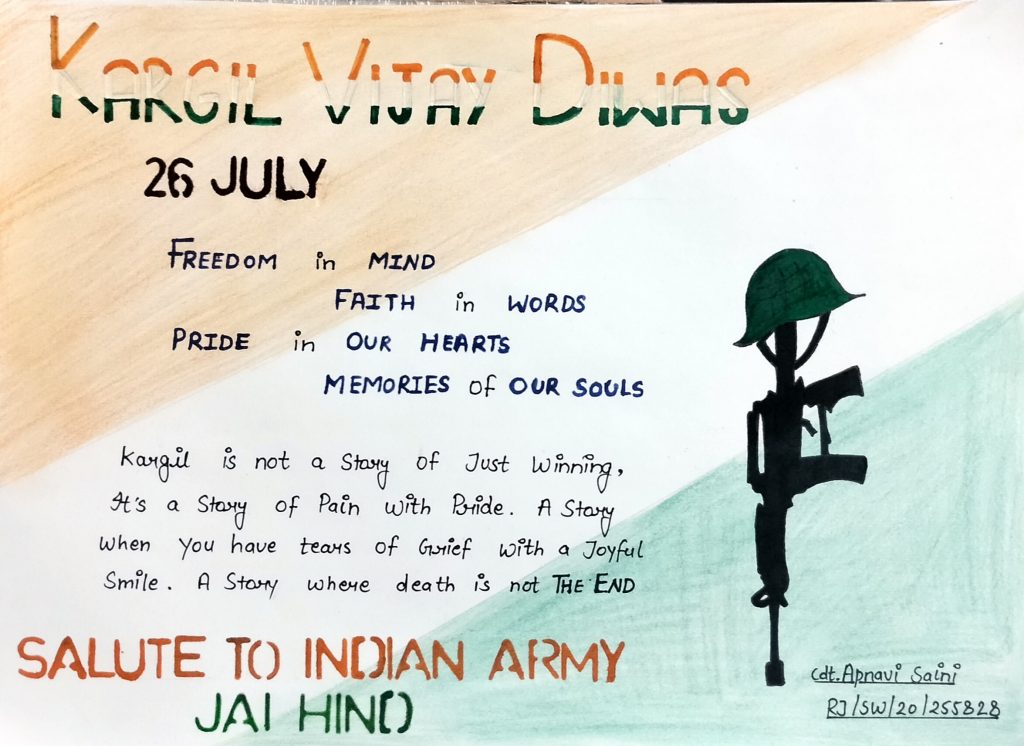 KARGIL VIJAY DIWAS
26 JULY
FREEDOM in MIND
FAITH in WORDS
PRIDE in OUR HEARTS
MEMORIES of OUR SOULS
Kargil is not a Story of Just Winning,
It's a Story of Pain with Pride. A Story
when you have tears of Grief with a Joyful
Smile. A Story where death is not THE END
SALUTE TO INDIAN ARMY
JAI HIND
Cdt. Apnavi Saini
RJ/SW/20/255828